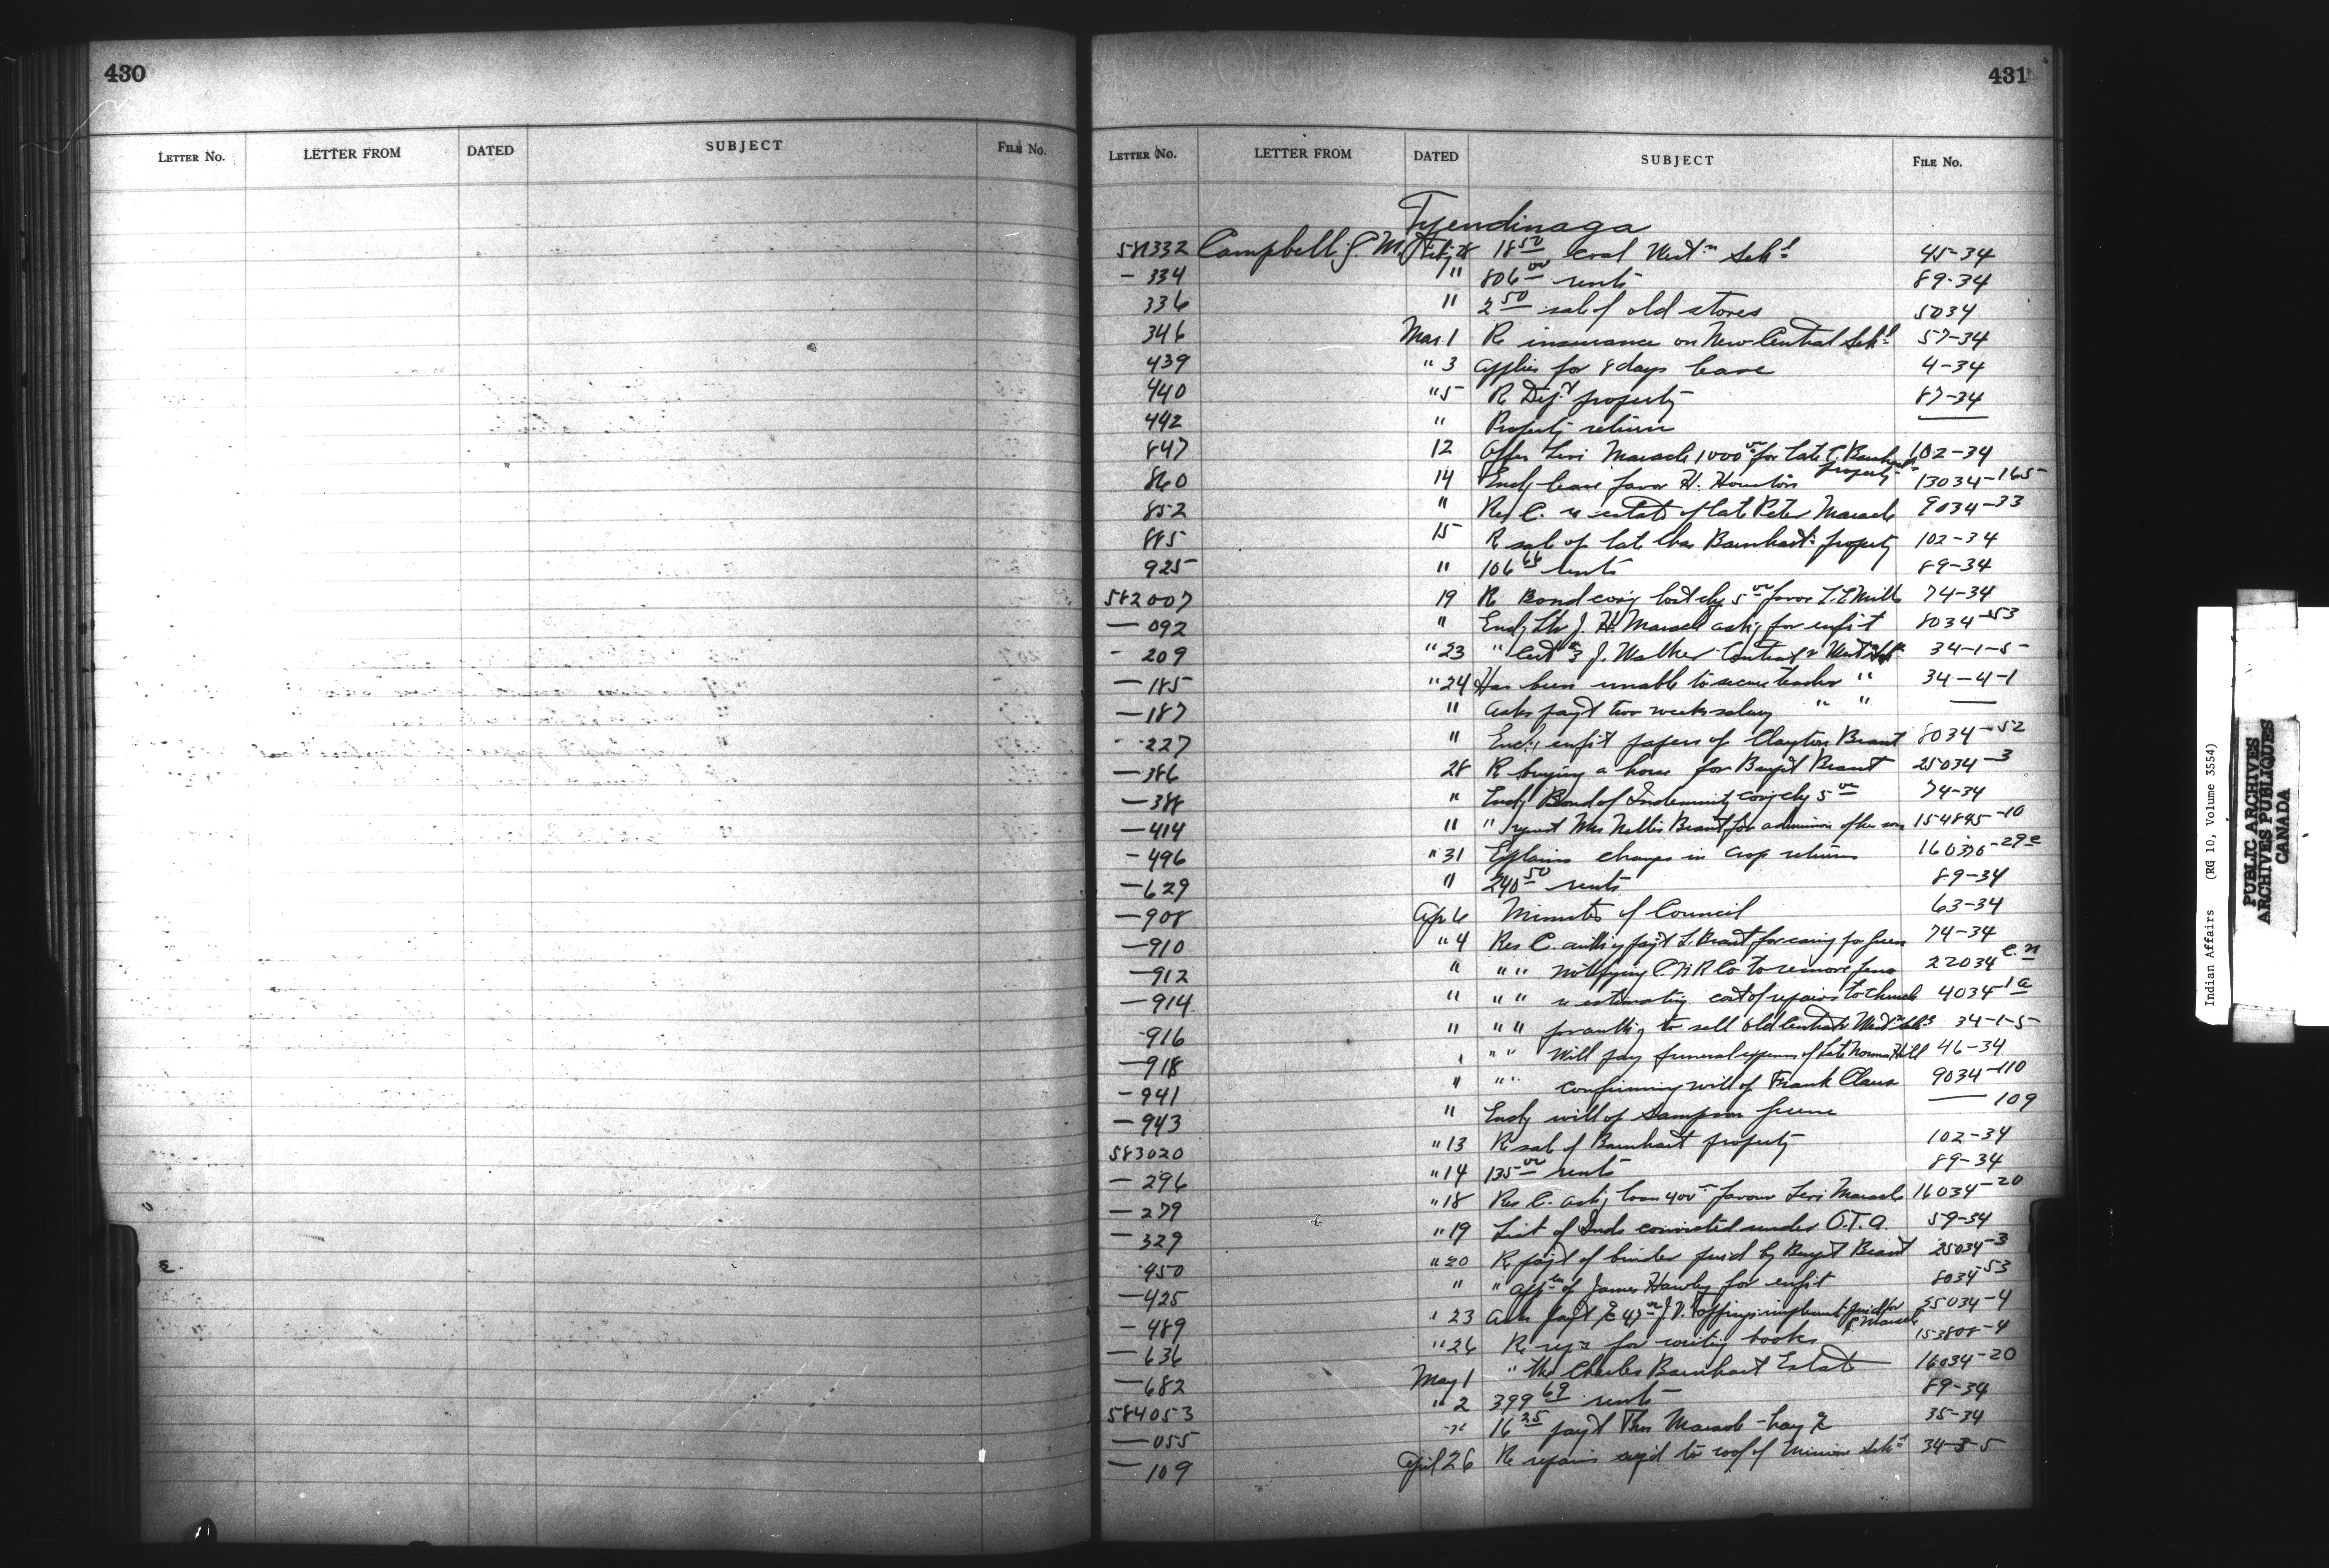 430
LETTER No. LETTER FROM DATED SUBJECT FILE No.
431
LETTER No. LETTER FROM DATED SUBJECT FILE No.
Tyendinaga
581332 Campbell, G. M. Feby 28 18 50 coal West n Schl 45-34
- 334 " 806 00 rents 89-34
336 " 2 50 sale of old stores 5034
346 Mar. 1 Re insurance on New Central Schl 57-34
439 " 3 applies for 8 days leave 4-34
440 " 5 Re Dept property 87-34
442 " Property return —
847 12 Offer Levi Maracle 1000 00 for late C. Barnhart property 102-34
860 14 Encl lease favor H. Houston 13034-165
852 " Res C. re estate of late Peter Maracle 9034-33
885 15 Re sale of late Chas Barnhart's property 102-34
925 " 106 66 rents 89-34
582007 19 Re Bond covg lost chq 5 00 favor 74-34
— 092 " Encl, Ltr J. H. Maracle askg for enfst 8034-53
- 209 " 23 " Cert #3 J. Walker Contract 34-1-5
— 185 " 24 Has been unable to secure teacher " 34-4-1
— 187 " Asks payt two weeks salary " " —
- 227 " Encl, enfst papers of Clayton Brant 8034-52
— 386 28 Re buying a horse for Benjt Brant 25034-3
— 388 " Encl, Bond of Indemnity covg chq 5 00 74-34
— 414 " " request Mrs Nellie Brant for admission of her son 154845-10
- 496 " 31 Explains changes in crop returns 29e
— 629 " 240 50 rents 89-34
— 908 Apr 6 Minutes of Council 63-34
— 910 " 4 Res C. authg payt L. Brant for caring for 74-34
— 912 " " " notifying C N R Co to remove fence 22034 C.N
— 914 " " " re estimating cost of repairs to church 4034-1a
- 916 " " " for authg to sell old Central & West n Schs 34-1-5
— 918 " " " Will pay funeral expenses of late Norman Hill 46-34
- 941 " " " confirming will of Frank Claus 9034-110
— 943 " Encl, will of Sampson Green — 109
583020 " 13 Re sale of Barnhart property 102-34
— 296 " 14 135 00 rents 89-34
— 279 " 18 Res C. askg loan 400 — favour Levi Maracle 16034-20
— 329 " 19 List of Inds convicted under O.T.A. 59-34
450 " 20 Re payt of binder purd by Benjt Brant 25034-3
— 425 " " appn of James Hawley for enfst 8034-53
— 489 " 23 Asks payt 47 00 J. V. implement purd for Maracle -4
— 636 " 26 Re reqn for writing books 153808-4
— 682 May 1 " the Charles Barnhart Estate 16034-20
584053 " 2 399 69 rents 89-34
— 055 " 16 25 payt Thos Maracle - hay & 35-34
— 109 April 26 Re repairs reqd to roof of Mission Schl 34-3-5
Indian Affairs (RG 10, Volume 3554)
PUBLIC ARCHIVES
ARCHIVES PUBLIQUES
CANADA